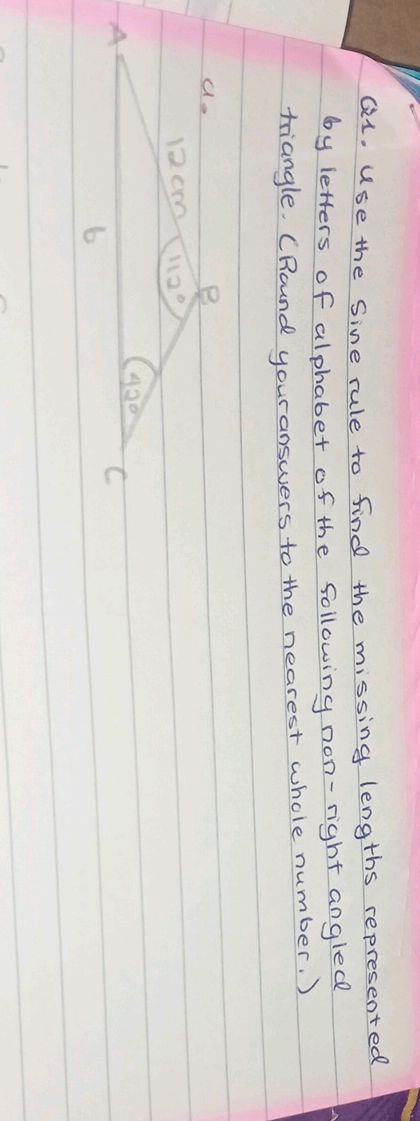 Q1. Use the Sine rule to find the missing lengths represented
by letters of alphabet of the following non-right angled
triangle. (Round your answers to the nearest whole number.)
a.
B
12cm
112°
42°
A
C
b